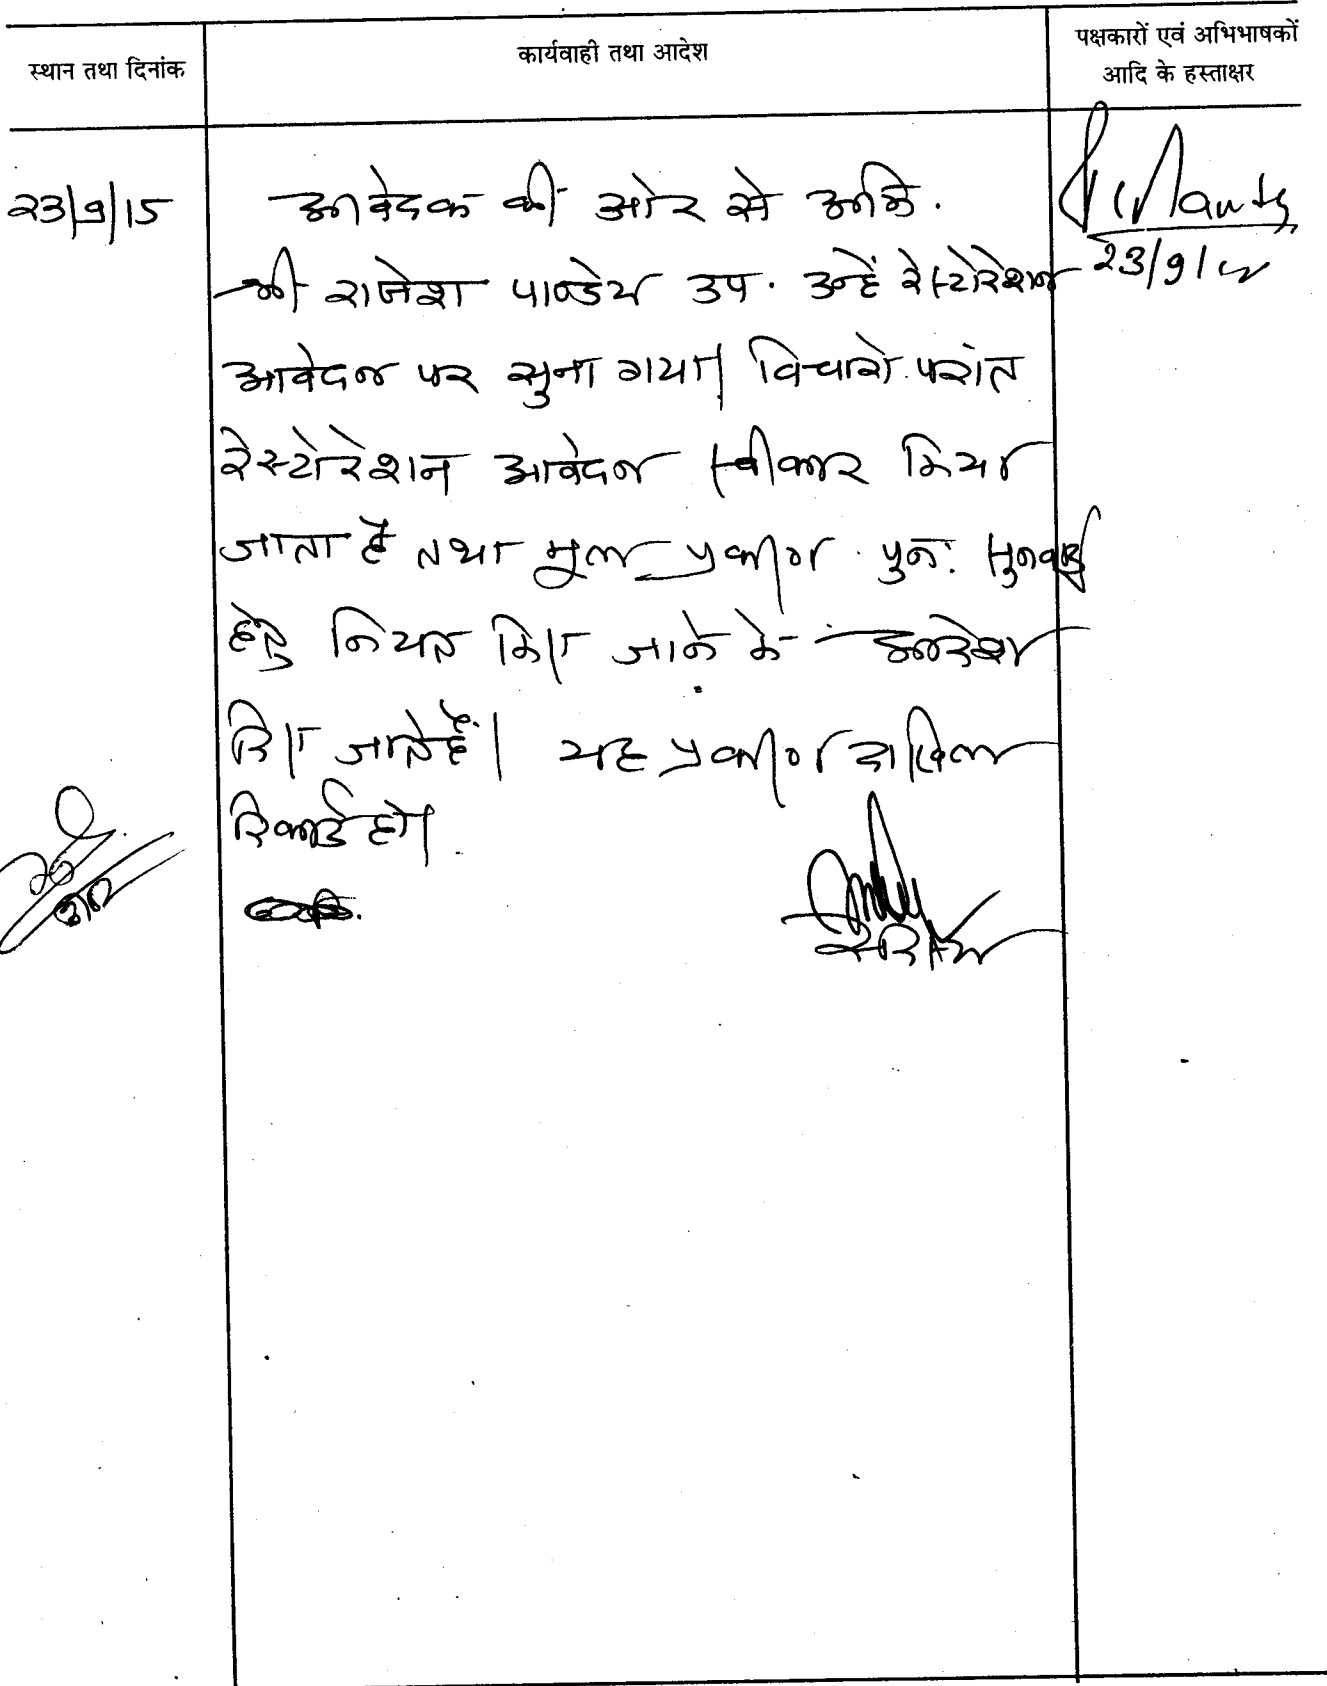 स्थान तथा दिनांक
कार्यवाही तथा आदेश
पक्षकारों एवं अभिभाषकों
आदि के हस्ताक्षर
23/9/15
आवेदक की ओर से अभि.
श्री राजेश पाण्डेय उप. उन्हें रेस्टोरेशन
आवेदन पर सुना गया। विचारोपरांत
रेस्टोरेशन आवेदन स्वीकार किया
जाता है तथा मूल प्रकरण पुनः सुनवाई
हेतु नियत किए जाने के आदेश
दिए जाते हैं। यह प्रकरण दाखिल
रिकार्ड हो।
सदस्य
23/9/15